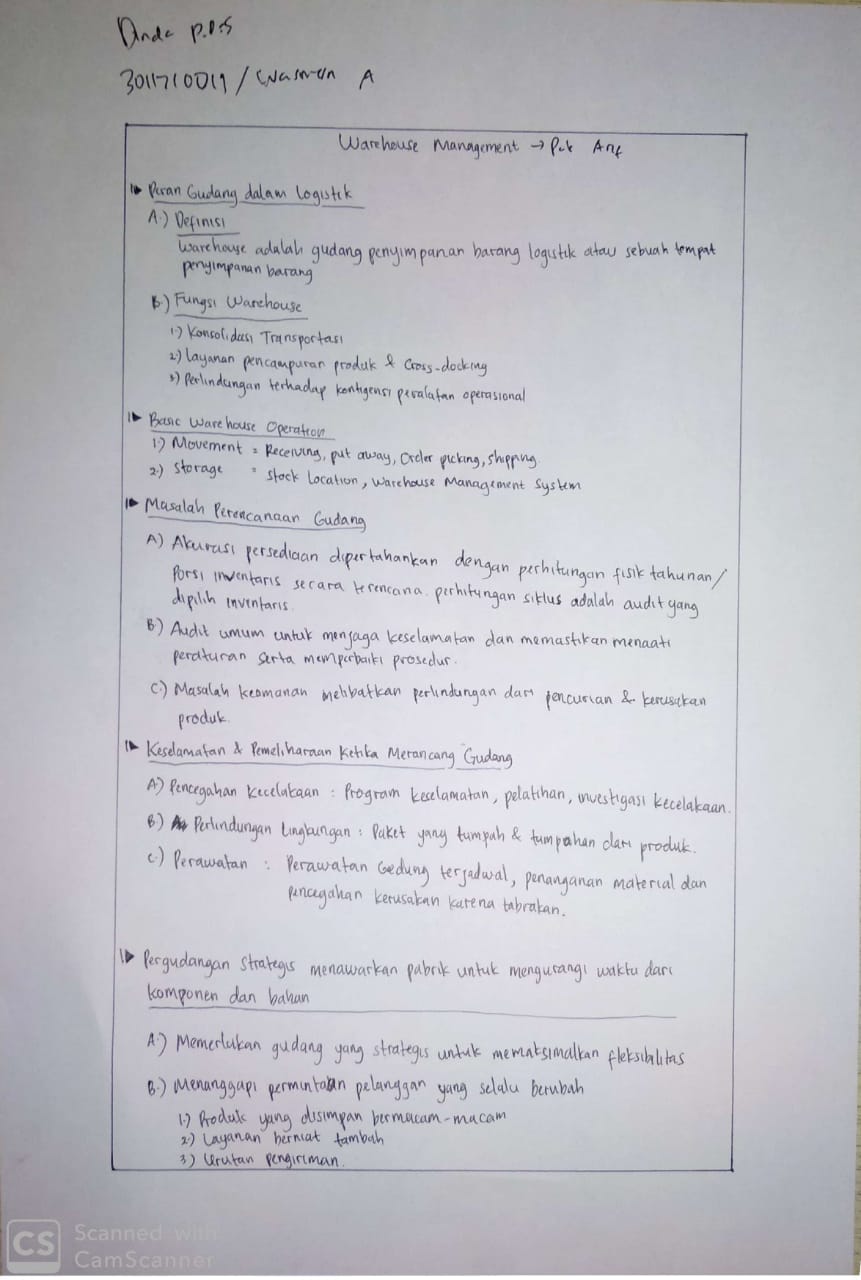 Dnda P.D.S
3011710019 / Wasmen A
Warehouse Management → Pak Arif
Peran Gudang dalam Logistik
A.) Definisi
Warehouse adalah gudang penyimpanan barang logistik atau sebuah tempat
penyimpanan barang
B.) Fungsi Warehouse
1.) Konsolidasi Transportasi
2.) Layanan pencampuran produk & Cross-docking
3) Perlindungan terhadap kontigensi peralatan operasional
Basic Warehouse Operation
1.) Movement = Receiving, put away, Order picking, shipping.
2.) Storage = Stock Location, Warehouse Management System
Masalah Perencanaan Gudang
A) Akurasi persediaan dipertahankan dengan perhitungan fisik tahunan/
Porsi inventaris secara terencana. perhitungan siklus adalah audit yang
dipilih inventaris.
B.) Audit umum untuk menjaga keselamatan dan memastikan menaati
peraturan serta memperbaiki prosedur.
C.) Masalah keamanan melibatkan perlindungan dari pencurian & kerusakan
produk.
Keselamatan & Pemeliharaan Ketika Merancang Gudang
A.) Pencegahan Kecelakaan : Program keselamatan, pelatihan, investigasi kecelakaan.
B.) Perlindungan Lingkungan : Paket yang tumpah & tumpahan dari produk.
C.) Perawatan : Perawatan Gedung terjadwal, penanganan material dan
pencegahan kerusakan karena tabrakan.
Pergudangan Strategis menawarkan pabrik untuk mengurangi waktu dari
komponen dan bahan
A.) Memerlukan gudang yang strategis untuk memaksimalkan fleksibilitas
B.) Menanggapi permintaan pelanggan yang selalu berubah
1.) Produk yang disimpan bermacam-macam
2.) Layanan berniat tambah
3.) Urutan pengiriman.
CS Scanned with
CamScanner